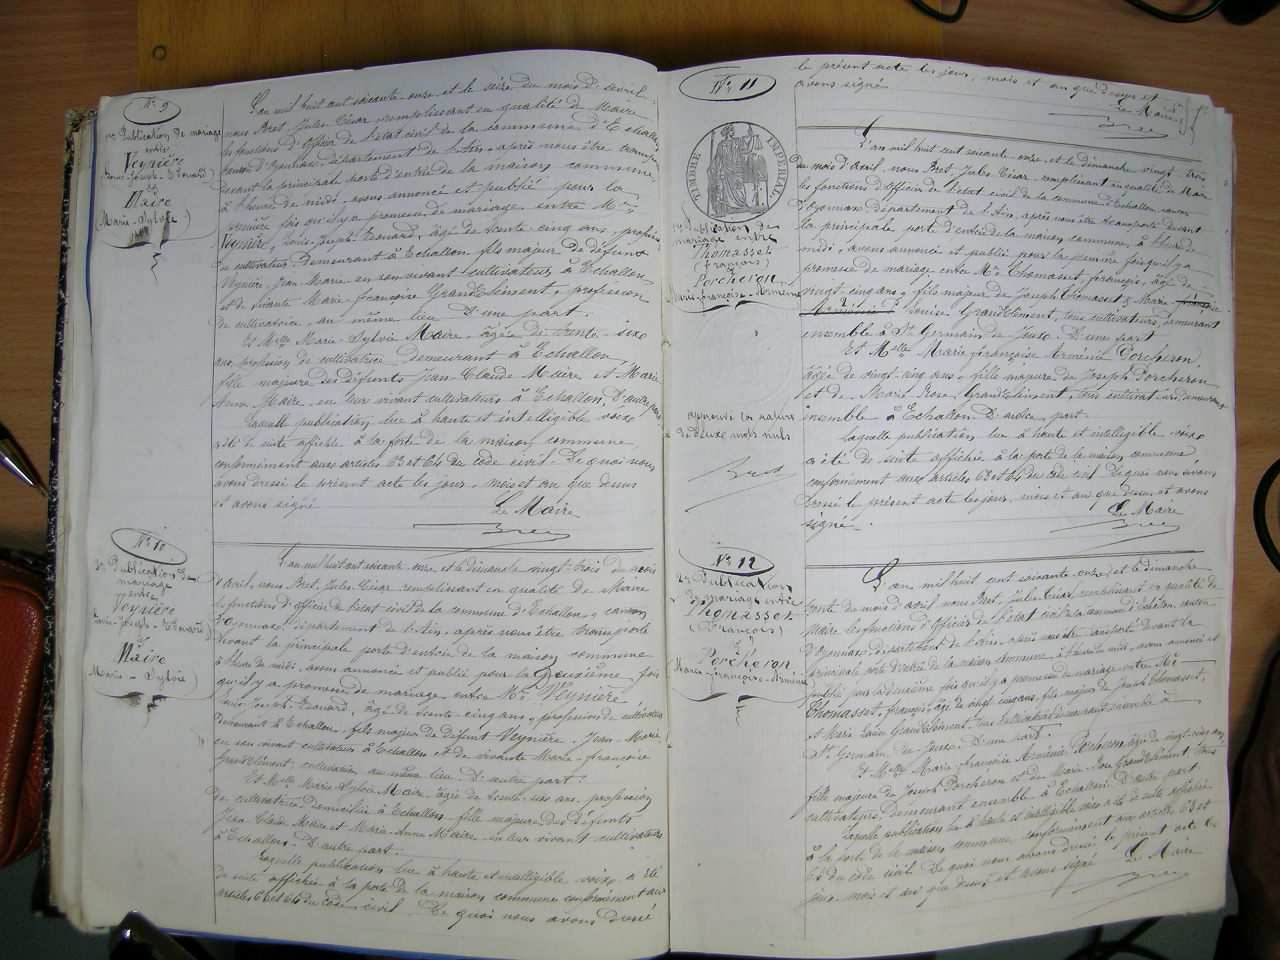 N° 9
1re Publication de mariage
entre
Veynière
Louis-Joseph-Edouard)
et
Maire
Marie-Sylvie)
L'an mil huit cent soixante onze et le seize du mois d'avril
nous Bret, Jules César remplissant en qualité de Maire
les fonctions d'officier de l'état civil de la commune d'Echallon,
canton d'Oyonnax département de l'Ain, après nous être transporté
devant la principale porte d'entrée de la maison commune,
à l'heure de midi, avons annoncé et publié pour la
première fois qu'il y a promesse de mariage entre Mr
Veynière, Louis-Joseph-Edouard, âgé de trente cinq ans, profession
de cultivateur, demeurant à Echallon, fils majeur de défunt
Veynière Jean-Marie en son vivant cultivateur à Echallon
et de vivante Marie-françoise Grandclément, profession
de cultivatrice, au même lieu. D'une part.
Et Melle Marie-Sylvie Maire, âgée de trente-six
ans, profession de cultivatrice demeurant à Echallon,
fille majeure des défunts Jean-Claude Maire et Marie
Anne Maire, en leur vivant cultivateurs à Echallon. D'autre part.
Laquelle publication lue à haute et intelligible voix
a été de suite affichée à la porte de la maison commune
conformément aux articles 63 et 64 du code civil. De quoi nous
avons dressé le présent acte les jour, mois et an que dessus
et avons signé
Le Maire
Bret
N° 10
2e Publication de
mariage
entre
Veynière
Louis-Joseph-Edouard)
et
Maire
Marie-Sylvie)
L'an mil huit cent soixante onze, et le dimanche vingt-trois du mois
d'avril, nous Bret, Jules César remplissant en qualité de Maire
les fonctions d'officier de l'état civil de la commune d'Echallon, canton
d'Oyonnax, département de l'Ain, après nous être transporté
devant la principale porte d'entrée de la maison commune
à l'heure de midi, avons annoncé et publié pour la deuxième fois
qu'il y a promesse de mariage entre Mr Veynière
Louis-Joseph-Edouard, âgé de trente-cinq ans, profession de cultivateur
demeurant à Echallon, fils majeur de défunt Veynière, Jean-Marie
en son vivant cultivateur à Echallon et de vivante Marie-françoise
Grandclément cultivatrice au même lieu D'autre part.
Et Melle Marie-Sylvie Maire, âgée de trente-six ans, profession
de cultivatrice domiciliée à Echallon, fille majeure des défunts
Jean Claude Maire et Marie-Anne Maire, en leur vivant cultivateurs
à Echallon. D'autre part.
Laquelle publication lue à haute et intelligible voix a été
de suite affichée à la porte de la maison commune conformément aux
articles 63 et 64 du code civil. De quoi nous avons dressé
le présent acte les jour, mois et an que dessus et
avons signé
Le Maire
Bret
N° 11
TIMBRE IMPÉRIAL
1re Publication de
mariage entre
Thomasset
(françois)
et
Porcheron
Marie-françoise-Arménie
L'an mil huit cent soixante onze, et le dimanche vingt-trois
du mois d'avril, nous Bret, Jules César, remplissant en qualité de Maire
les fonctions d'officier de l'état civil de la commune d'Echallon, canton
d'Oyonnax, département de l'Ain, après nous être transporté devant
la principale porte d'entrée de la maison commune, à l'heure de
midi, avons annoncé et publié pour la première fois qu'il y a
promesse de mariage entre Mr Thomasset, françois, âgé de
vingt-cinq ans, fils majeur de Joseph Thomasset & Marie
Louise Grandclément, tous cultivateurs, demeurant
ensemble à St Germain de Joux. D'une part
Et Melle Marie françoise Arménie Porcheron,
âgée de vingt-cinq ans, fille majeure de Joseph Porcheron
et de Marie Rose Grandclément, tous cultivateurs demeurant
ensemble à Echallon D'autre part.
Laquelle publication lue à haute et intelligible voix
a été de suite affichée à la porte de la maison commune,
conformément aux articles 63 et 64 du code civil. De quoi nous avons
dressé le présent acte les jour, mois et an que dessus, et avons
signé.
Le Maire
Bret
approuvé la rature
de deux mots nuls
Bret
N° 12
2e Publication
de mariage entre
Thomasset
(François)
et
Porcheron
(Marie-françoise-Arménie
L'an mil huit cent soixante onze, et le dimanche
trente du mois d'avril nous Bret, Jules César remplissant en qualité de
Maire les fonctions d'officier de l'état civil de la commune d'Echallon, canton
d'Oyonnax département de l'Ain, après nous être transporté devant la
principale porte d'entrée de la maison commune, à l'heure de midi, avons annoncé et
publié pour la deuxième fois qu'il y a promesse de mariage entre Mr
Thomasset, françois, âgé de vingt cinq ans, fils majeur de Joseph Thomasset,
et Marie Louise Grandclément, tous cultivateurs demeurant ensemble à
St Germain de Joux. D'une part.
Et Melle Marie françoise Arménie Porcheron, âgée de vingt-cinq ans,
fille majeure de Joseph Porcheron et de Marie Rose Grandclément tous
cultivateurs, demeurant ensemble à Echallon. D'autre part.
Laquelle publication lue à haute et intelligible voix a été de suite affichée
à la porte de la maison commune, conformément aux articles 63 et
64 du code civil. De quoi nous avons dressé le présent acte les
jour, mois et an que dessus et avons signé
Le Maire
Bret